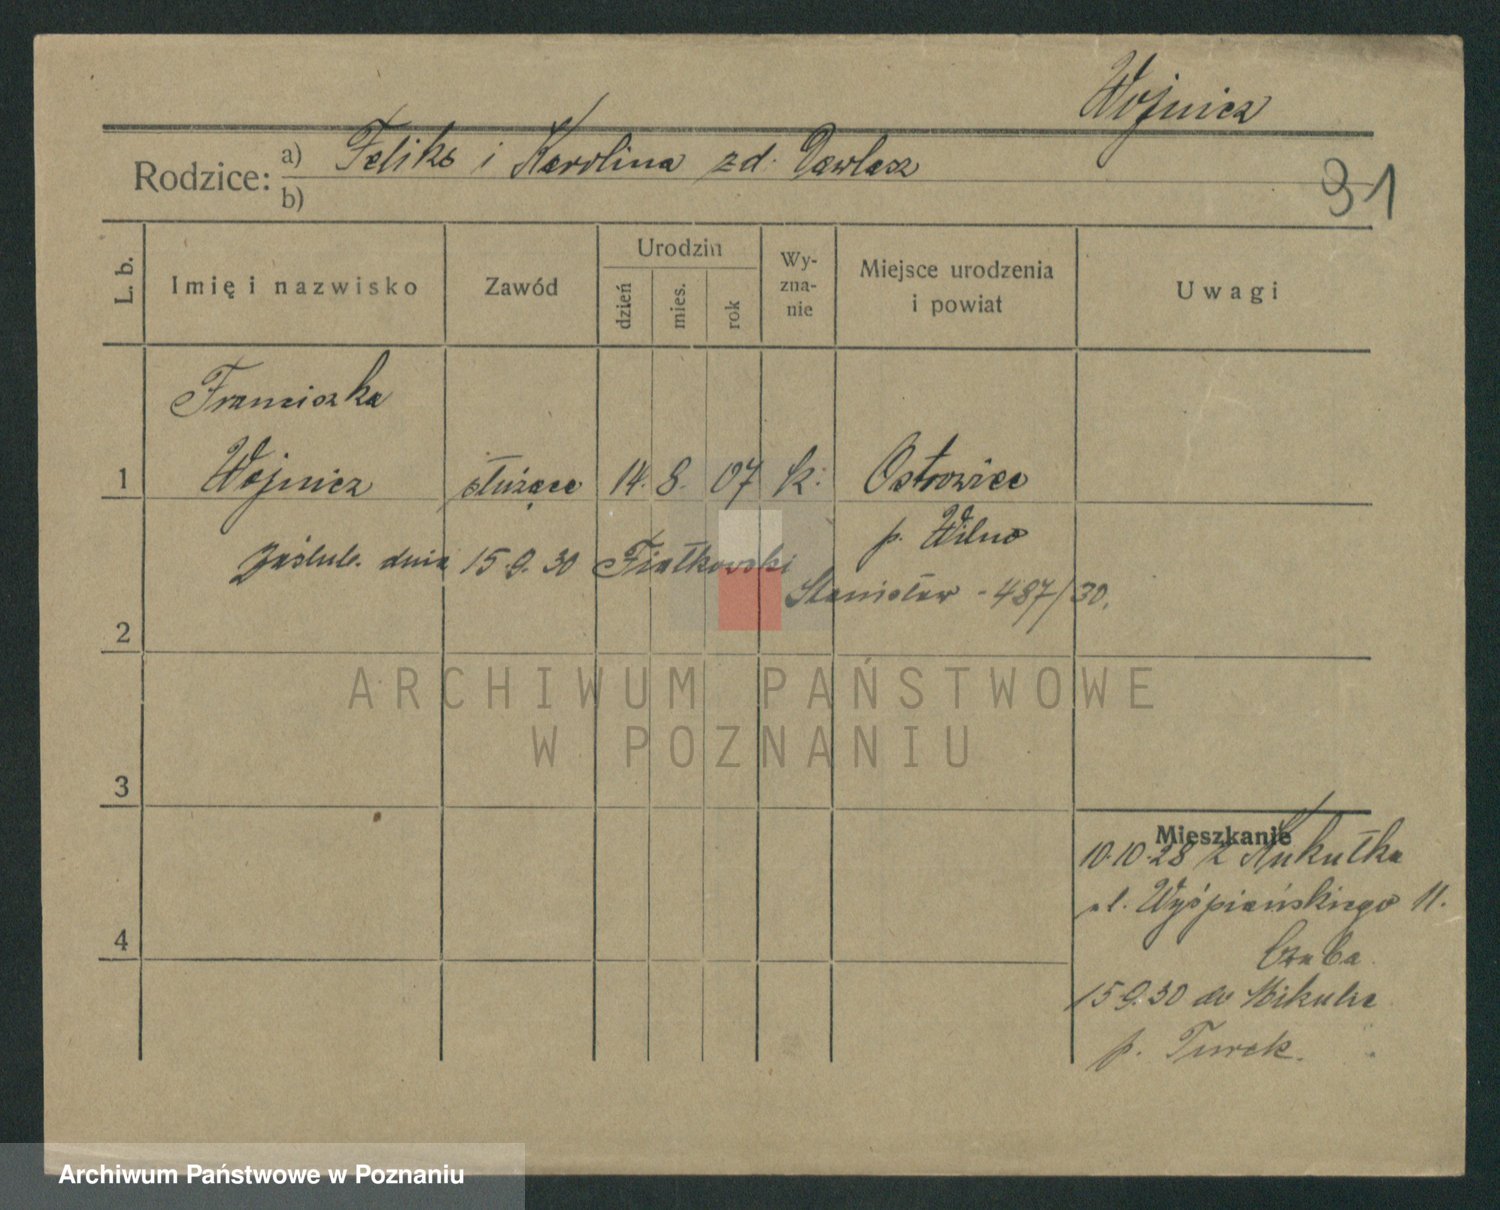 Wojnicz
Rodzice: a) Feliks i Karolina zd. Dawlasz
b)
31
L. b.
Imię i nazwisko
Zawód
Urodzin
dzień
mies.
rok
Wy-
zna-
nie
Miejsce urodzenia
i powiat
Uwagi
Franciszka
1 Wojnicz służąca 14. 8. 07 k. Ostrowiec
p. Wilno
Zaślub. dnia 15.9.30 Fiałkowski
Stanisław - 487/30.
2
ARCHIWUM PAŃSTWOWE
W POZNANIU
3
Mieszkanie
10.10.28 z Kukułka
ul. Wyśpiańskiego 11.
4
15.9.30 do Mikulic
p. Turek.
Archiwum Państwowe w Poznaniu